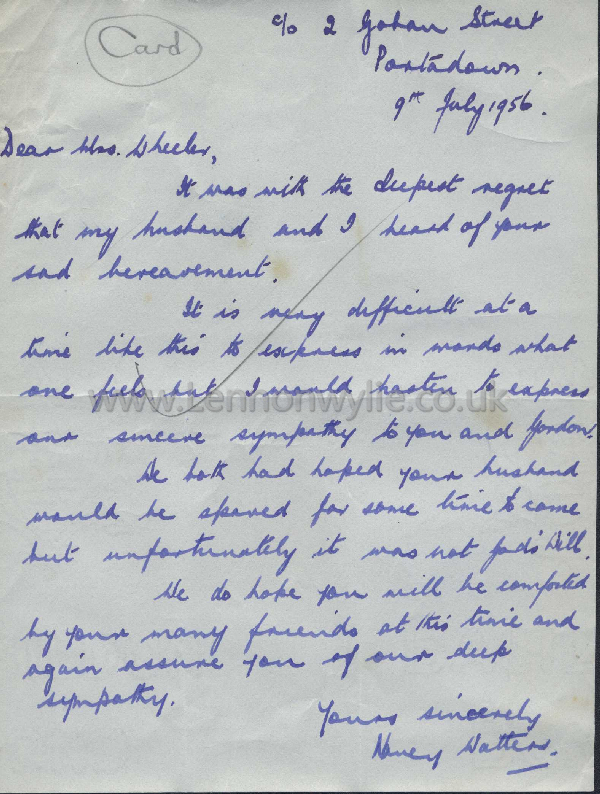 Card
c/o 2 Goban Street
Portadown.
9th July 1956.
Dear Mrs. Wheeler,
It was with the deepest regret
that my husband and I heard of your
sad bereavement.
It is very difficult at a
time like this to express in words what
one feels but I would hasten to express
our sincere sympathy to you and Gordon.
We both had hoped your husband
would be spared for some time to come
but unfortunately it was not God's Will.
We do hope you will be comforted
by your many friends at this time and
again assure you of our deep
sympathy.
Yours sincerely
Nancy Watters.
www.Lennonwylie.co.uk